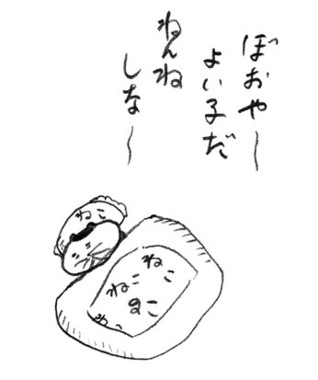 ぼおや〜
よい子だ
ねんね
しな〜
ねこ
ねこ
ねこ
ねこ